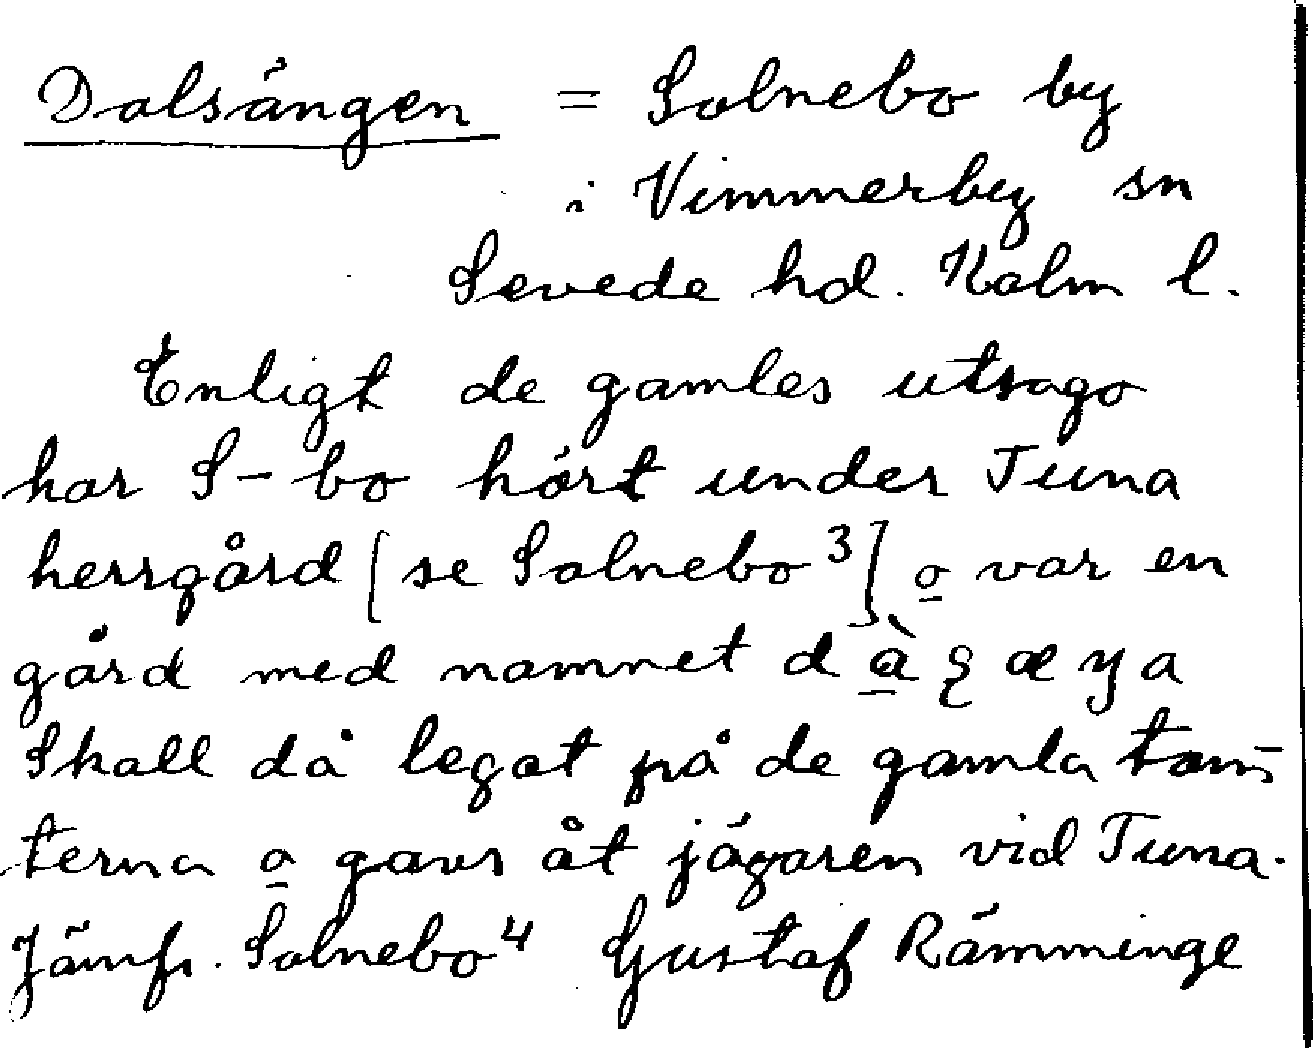 Dalsängen = Solnebo by
i Vimmerby sn
Sevede hd. Kalm l.
Enligt de gamles utsago
har S-bo hört under Tuna
herrgård [se Solnebo 3] o var en
gård med namnet
Skall då legat på de gamla tom-
terna o gavs åt jägaren vid Tuna.
Jämfr. Solnebo 4 Gustaf Rämminge